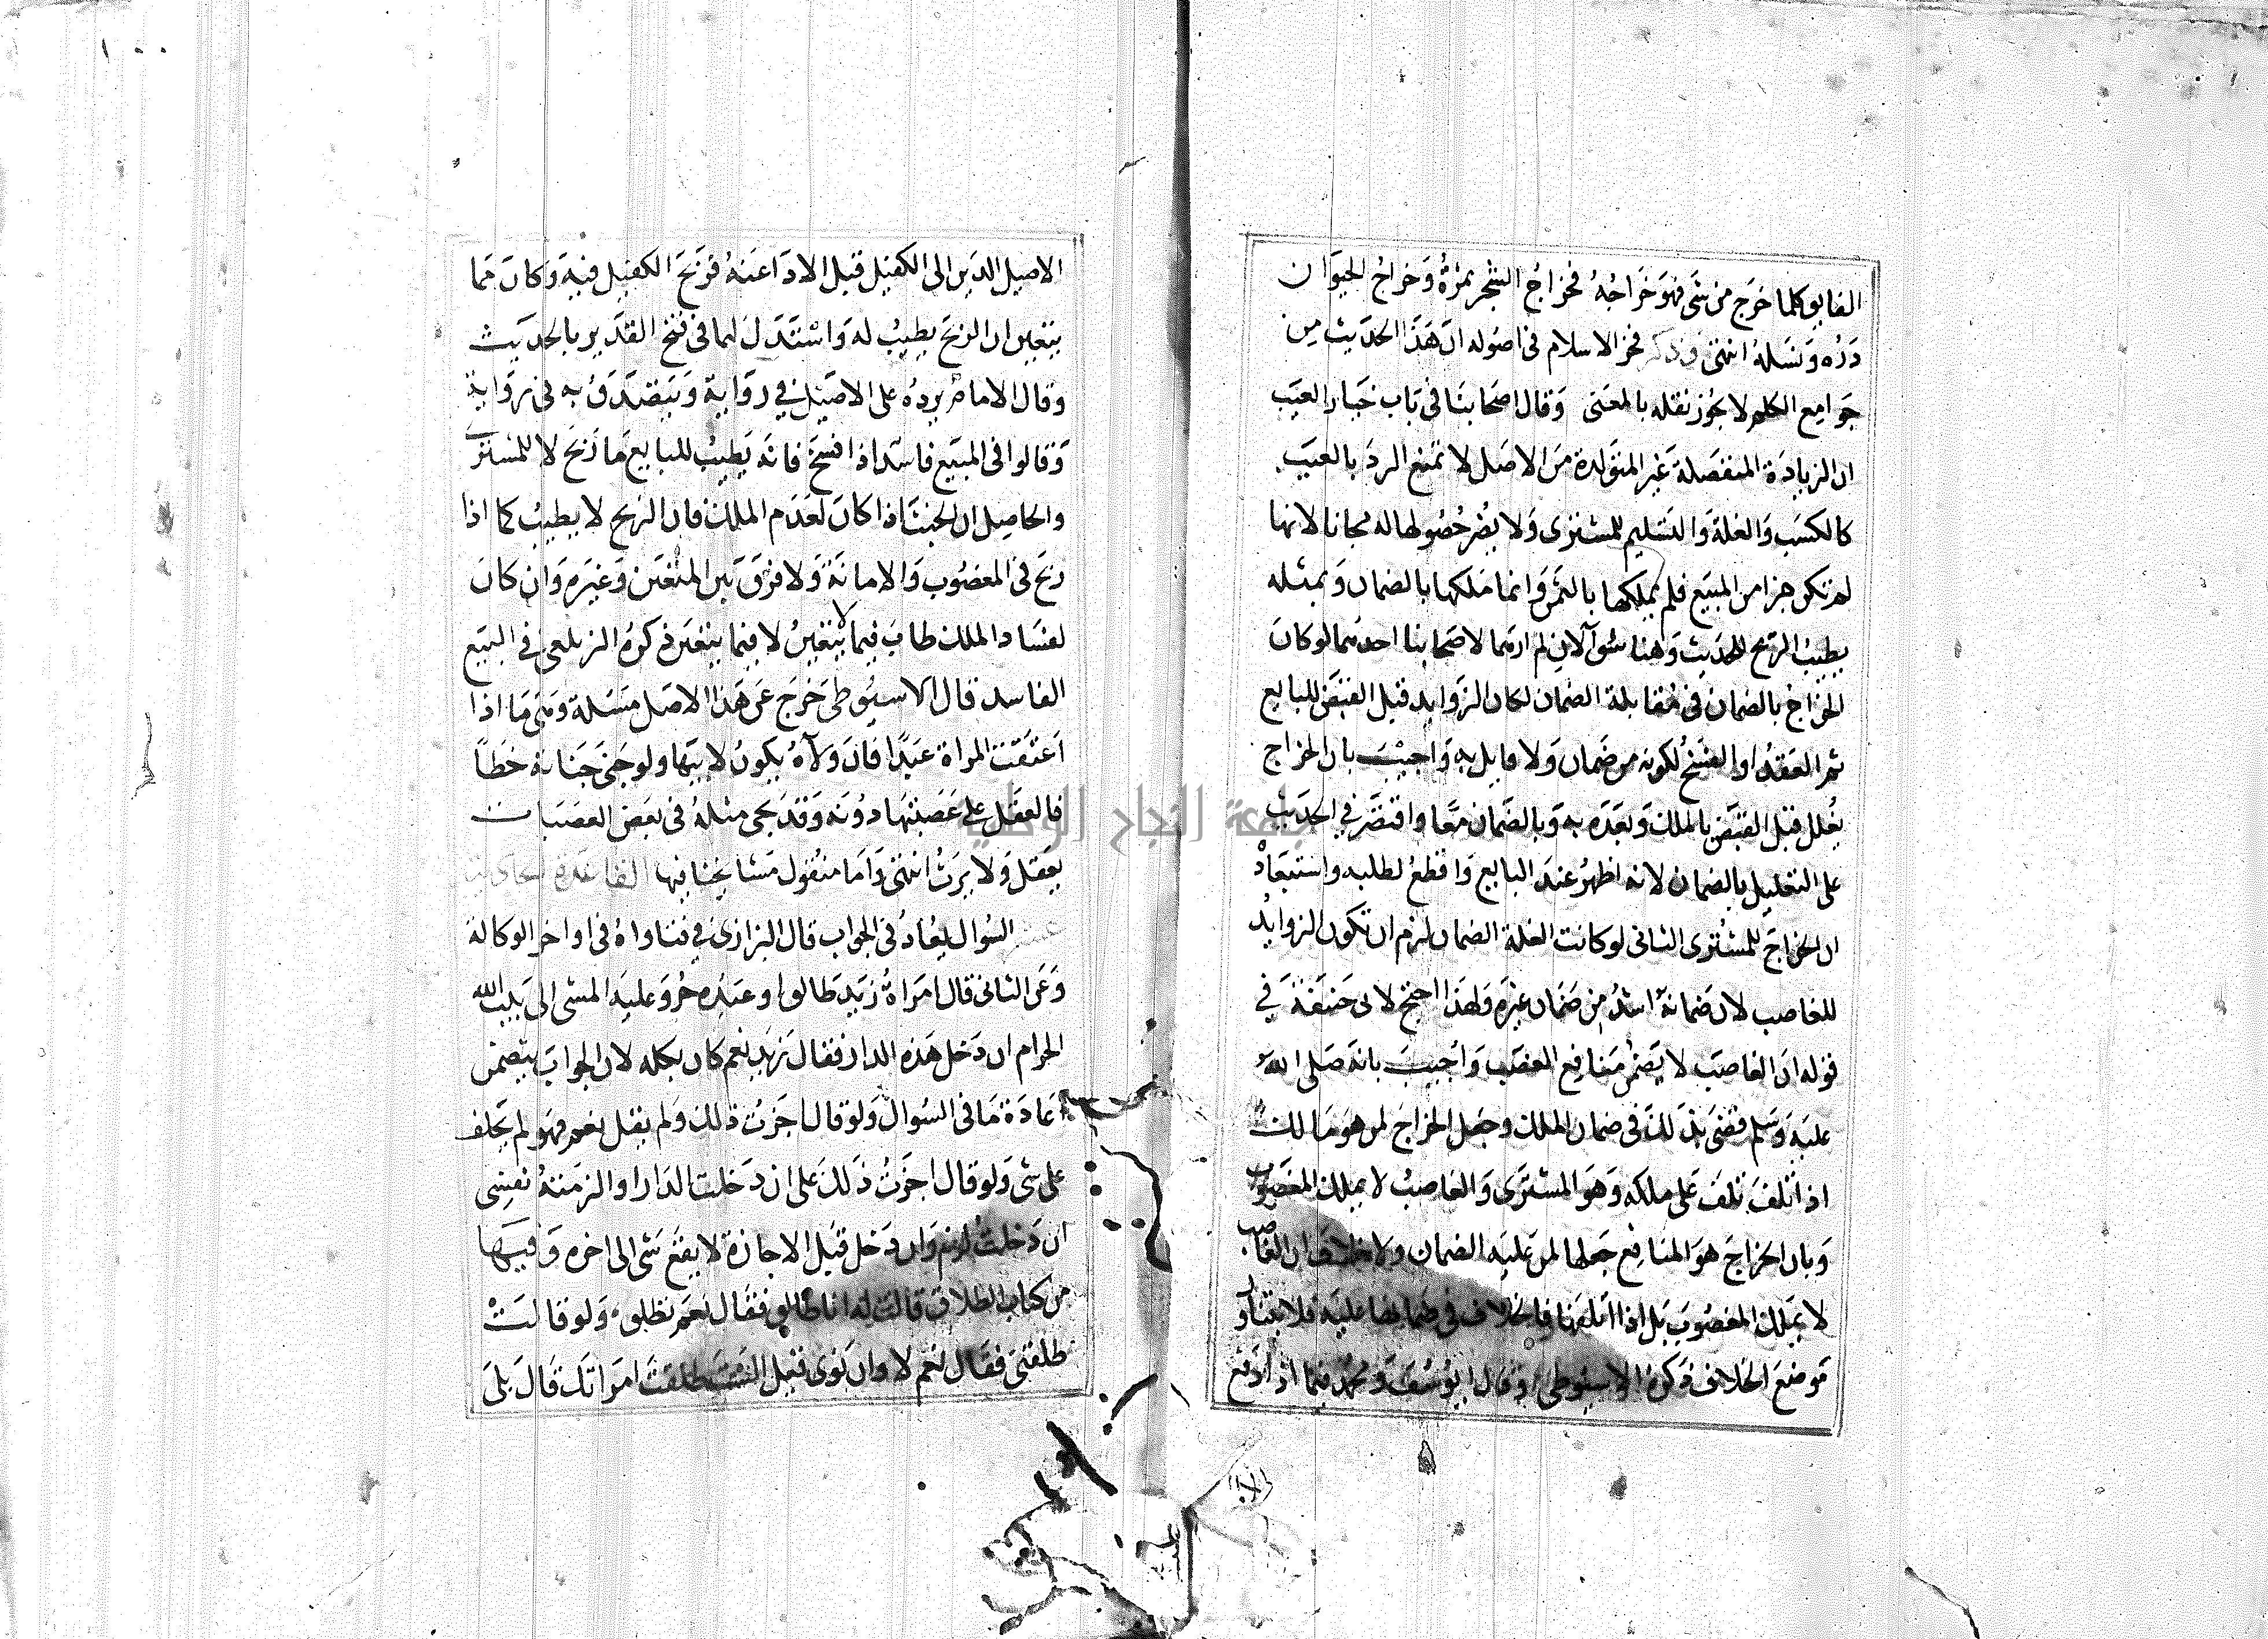 الفايق كلما خرج من شي فهو خراجه فخراج الشجر ثمرة وخراج الحيوان
دره ونسله انتهى وذكر فخر الاسلام في اصوله ان هذا الحديث من
جوامع الكلم لا يجوز نقله بالمعنى وقال اصحابنا في باب خيار العيب
ان الزيادة المنفصلة غير المتولدة من الاصل لا تمنع الرد بالعيب
كالكسب والغلة والتسليم للمشتري ولا يضر حصولها له مجانا لانها
لم تكن جزا من المبيع فلم يملكها بالثمن وانما ملكها بالضمان وبمثله
يطيب الربح للحديث وهنا سوآلان لم ارهما لاصحابنا احدهما لو كان
الخراج بالضمان في مقابلة الضمان لكان الزوايد قبل القبض للبايع
تم العقد او الفسخ لكونه من ضمان ولا قايل به واجيب بان الخراج
يعلل قبل القبض بالملك وبعده به وبالضمان معا واقتصر في الحديث
على التعليل بالضمان لانه اظهر عند البايع واقطع لطلبه واستبعاد
ان الخراج للمشتري الثاني لو كانت الغلة الضمان لزم ان تكون الزوايد
للغاصب لان ضمانه اشد من ضمان غيره ولهذا احتج لابي حنيفة في
قوله ان الغاصب لا يضمن منافع الغصب واجيب بانه صلى الله
عليه وسلم قضى بذلك في ضمان الملك وجعل الخراج لمن هو مالك
اذا تلف تلف على ملكه وهو المشتري والغاصب لا يملك المغصوب
وبان الخراج هو المنافع جعلها لمن عليه الضمان ولا خلاف ان الغاصب
لا يملك المغصوب بل اذا اتلفها فالخلاف في ضمانها عليه فلا يتناول
موضع الخلاف ذكره الاسيوطي وقال ابو يوسف ومحمد فيما اذا دفع
الاصيل الدين الى الكفيل قبل الادا عنه فربح الكفيل فيه وكان مما
يتعين ان الربح يطيب له واستدل لهما في فتح القدير بالحديث
وقال الامام يرده على الاصيل في رواية ويتصدق به في رواية
وقالوا في المبيع فاسدا اذا فسخ فانه يطيب للبايع ما ربح لا للمشتري
والحاصل ان الخبث اذا كان لعدم الملك فان الربح لا يطيب كما اذا
ربح في المغصوب والامانة ولا فرق بين المتعين وغيره وان كان
لفساد الملك طاب فيما لا يتعين لا فيما يتعين ذكره الزيلعي في البيع
الفاسد قال الاسيوطي خرج عن هذا الاصل مسئلة وهي ما اذا
اعتقت المراة عبدا فان ولآه يكون لابنها ولو جنى جناية خطا
فالعقل على عصبتها دونه وقد يجي مثله في بعض العصبات
يعقل ولا يرث انتهى واما منقول مشايخنا فيها القاعدة الحادية
عشر السوال يعاد في الجواب قال البزازي في فتاواه في اواخر الوكالة
وعن الثاني قال امراة زيد طالق او عبده حر وعليه المشي الى بيت الله
الحرام ان دخل هذه الدار فقال زيد نعم كان بكله لان الجواب يتضمن
اعادة ما في السوال ولو قال اجزت ذلك ولم يقل نعم فهو لم يحلف
على شي ولو قال اجزت ذلك على ان دخلت الدار او الزمته نفسي
ان دخلت لزم وان دخل قبل الاجازة لا يقع شي الى اخره وفيها
من كتاب الطلاق قالت له انا طالق فقال نعم تطلق ولو قالت
طلقني فقال نعم لا وان نوى قيل الست طلقت امراتك قال بلى
الا
جامعة النجاح الوطنية